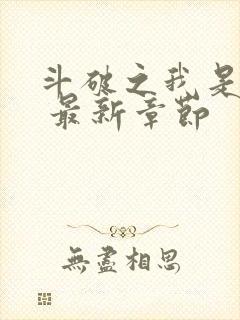 斗破之我是
最新章节
無盡相思